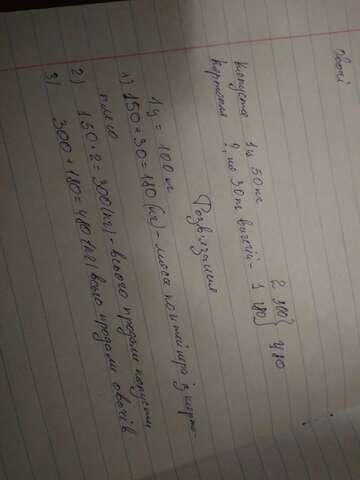 овочі
капуста 1ц 50кг 2 300} 480
картопля ?, на 30кг 1 180}
Розв'язання
1ц = 100кг
1) 150 + 30 = 180 (кг) - маса контейнера із карто-
плею
2) 150 · 2 = 300 (кг) - всього продали капусти
3) 300 + 180 = 480 (кг) всього продали овочів